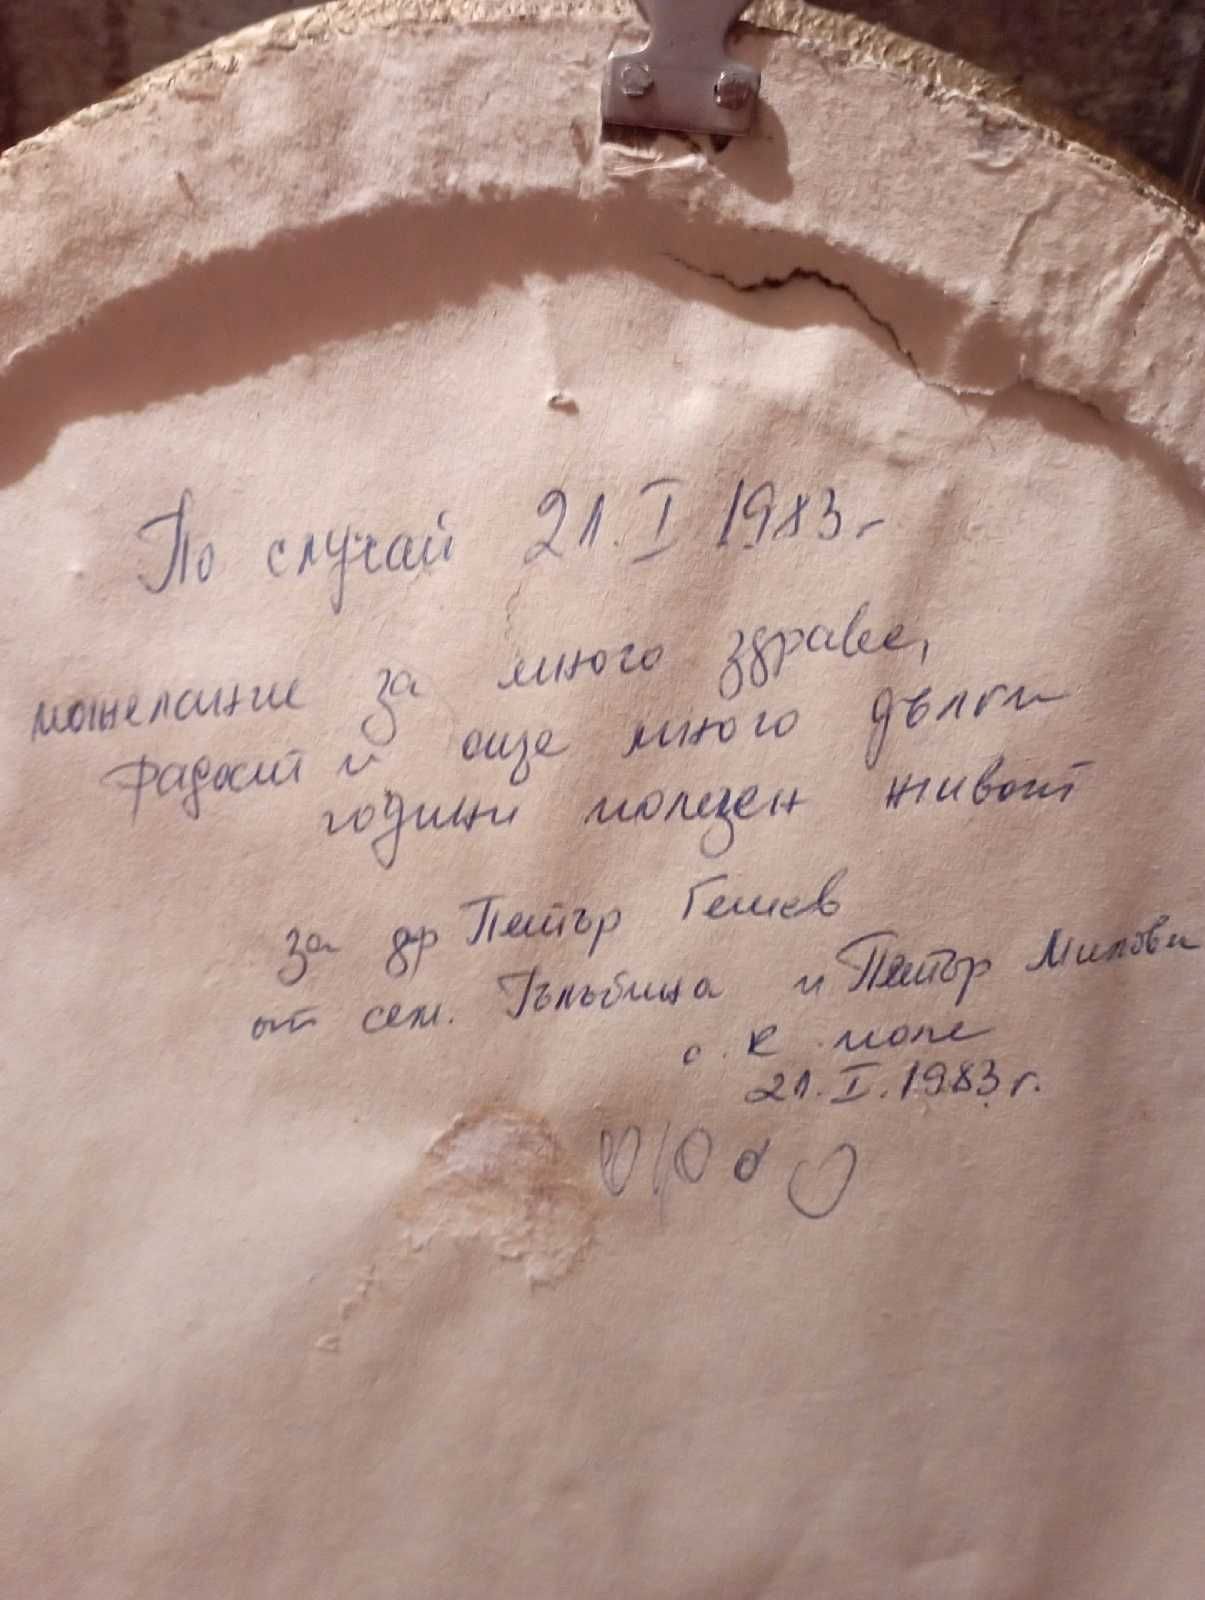 По случай 21. I 1983 г
пожелание за много здраве,
радост и още много дълги
години полезен живот
за др Петър Гешев
от сем. Гълъбица и Петър Милови
с. К поле
21. I. 1983 г.